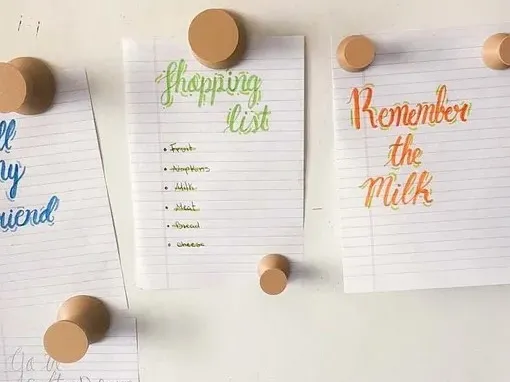 ll
my
riend
Shopping
list
• Fruit
• Napkins
• Milk
• Meat
• Bread
• cheese
Remember
the
Milk